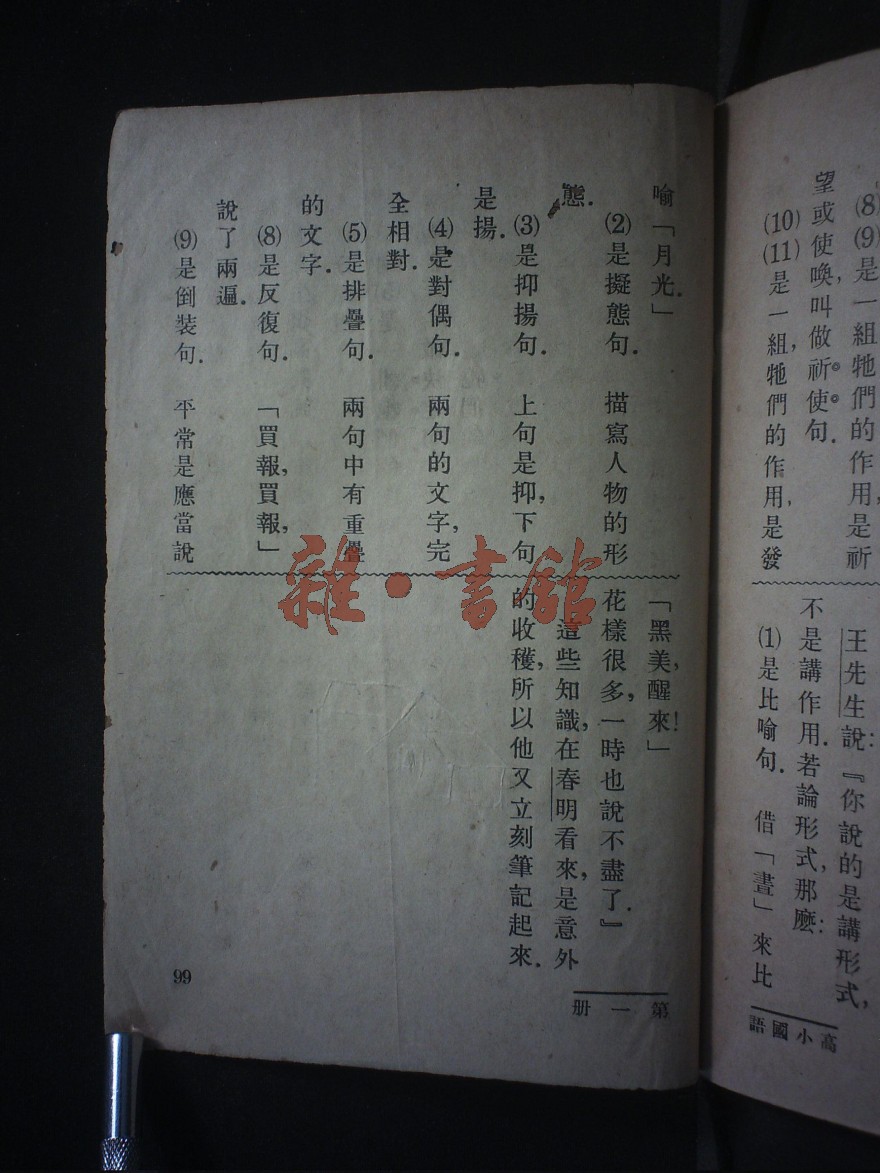 (8)(9)是一組牠們的作用,是祈
望或使喚,叫做祈使句.
(10)(11)是一組,牠們的作用,是發
王先生說:『你說的是講形式,
不是講作用.若論形式,那麼:
(1)是比喻句. 借「晝」來比
高小國語
喻「月光.」
(2)是擬態句. 描寫人物的形
態.
(3)是抑揚句. 上句是抑,下句
是揚.
(4)是對偶句. 兩句的文字,完
全相對.
(5)是排疊句. 兩句中有重疊
的文字.
(8)是反復句. 「買報,買報,」
說了兩遍.
(9)是倒裝句. 平常是應當說
「黑美,醒來!」
花樣很多,一時也說不盡了.』
這些知識,在春明看來,是意外
的收穫,所以他又立刻筆記起來.
第一册
99
雜·書館